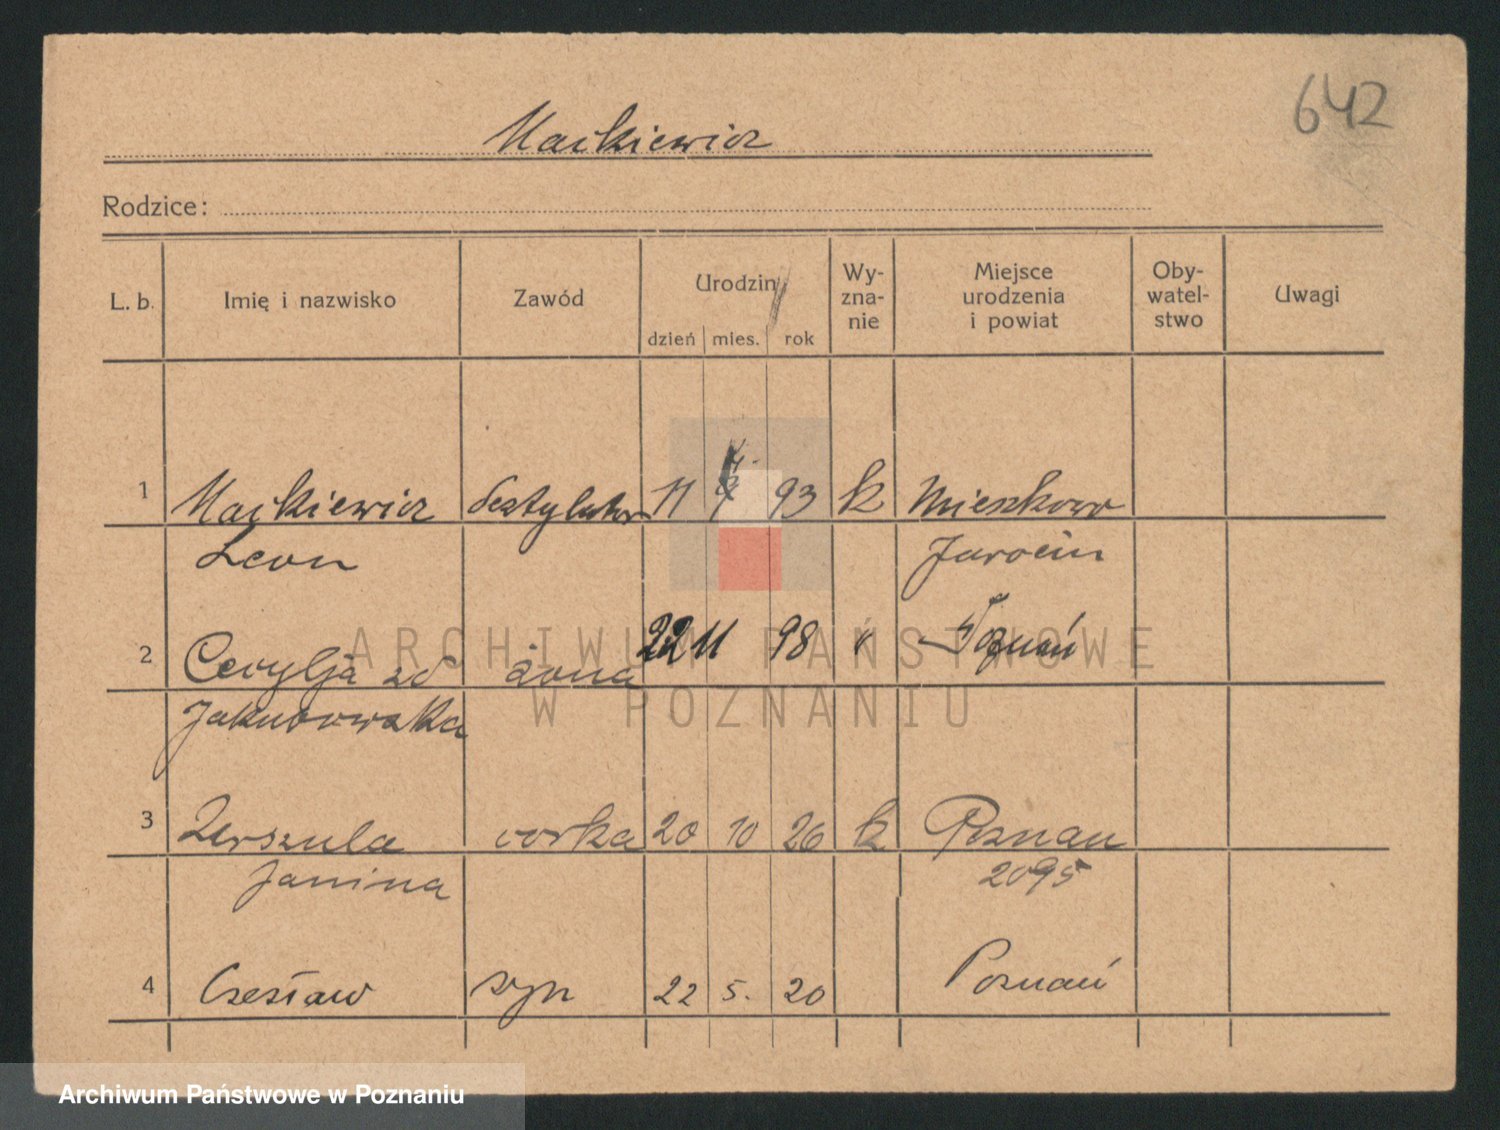 642
Maćkiewicz
Rodzice:
L. b. Imię i nazwisko Zawód Urodziny Wy- Miejsce Oby- Uwagi
zna- urodzenia watel-
nie i powiat stwo
dzień mies. rok
1 Maćkiewicz destylator 11 4. 93 k Mieszkowo
Leon Jarocin
2 Cecylja zd żona 22 11 98 k Poznań
Jakubowska
3 Urszula córka 20 10 26 k Poznań
Janina 2095
4 Czesław syn 22 5. 20 Poznań
ARCHIWUM PAŃSTWOWE
W POZNANIU
Archiwum Państwowe w Poznaniu